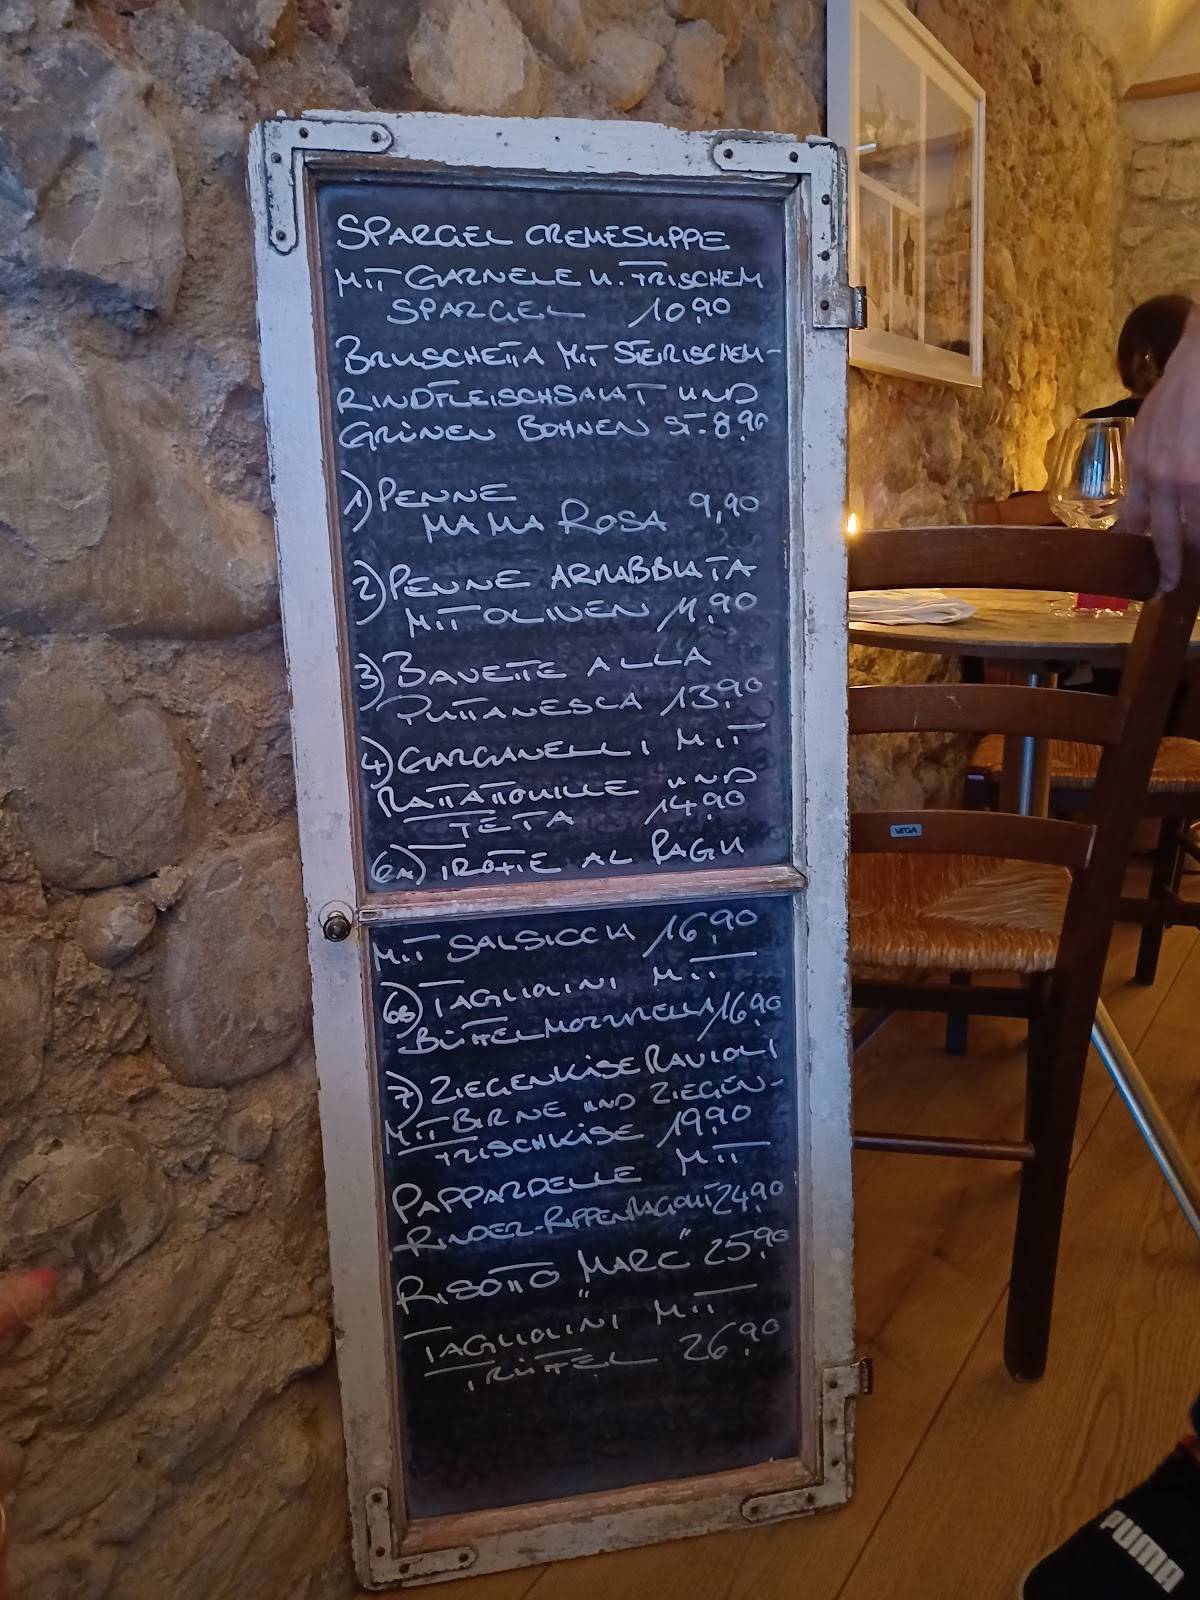 SPARGEL CREMESUPPE
MIT GARNELE U. FRISCHEM
SPARGEL 10,90
BRUSCHETTA MIT STEIRISCHEM-
RINDFLEISCHSALAT UND
GRÜNEN BOHNEN ST. 8,90
1) PENNE
MAMA ROSA 9,90
2) PENNE ARRABBIATA
MIT OLIVEN 11,90
3) BAVETTE ALLA
PUTTANESCA 13,90
4) GARGANELLI MIT
RATTATTOUILLE UND
FETA 14,90
6A) TROFIE AL RAGU
MIT SALSICCIA 16,90
6B) TAGLIOLINI MIT
BÜFFELMOZZARELLA 16,90
7) ZIEGENKÄSE RAVIOLI
MIT BIRNE UND ZIEGEN-
FRISCHKÄSE 19,90
PAPPARDELLE MIT
RINDER-RIPPENRAGOUT 24,90
RISOTTO "MARC" 25,90
TAGLIOLINI MIT
TRÜFFEL 26,90
VEGA
PUMA